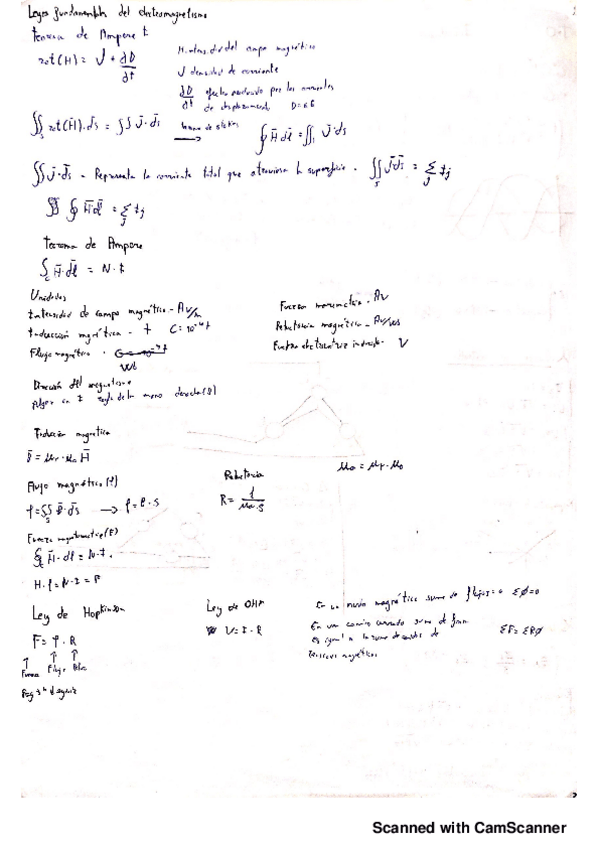 Leyes fundamentales del electromagnetismo
Teorema de Ampere
rot(H) = J + dD/dt
Intensidad del campo magnético
J densidad de corriente
dD/dt efecto producido por las
de desplazamiento D=εE
∬s rot(H)·ds = ∬ J·ds → ∮ H dl = ∬s J·ds
∬ J·ds - Representa la corriente total que atraviesa la superficie. ∬s J ds = Σj Ij
∮ H dl = Σj Ij
Teorema de Ampere
∫c H·dl = N·I
Unidades
Intensidad de campo magnético - Av/m
Inducción magnética - T G=10⁻⁴T
Flujo magnético -
Wb
Fuerza - Av
Reluctancia magnética - Av/Wb
Fuerza electromotriz inducida - V
Dirección del
regla de la mano derecha
Inducción magnética
B = μr·μo H
Flujo magnético
φ=∬s B·ds → φ = B·S
Fuerza magnetomotriz (F)
∮ H·dl = N·I
H·l = N·I = F
Reluctancia
R = l/μa·S
μa = μr·μo
Ley de Hopkinson
F = φ·R
↑ ↑ ↑
Fuerza Flujo
Ley de OHM
V = I·R
En un nudo magnético suma de flujos = 0 Σφ=0
En un camino cerrado suma de fmm
es igual a la suma de
tensiones magnéticas
ΣF = ΣRφ
Scanned with CamScanner